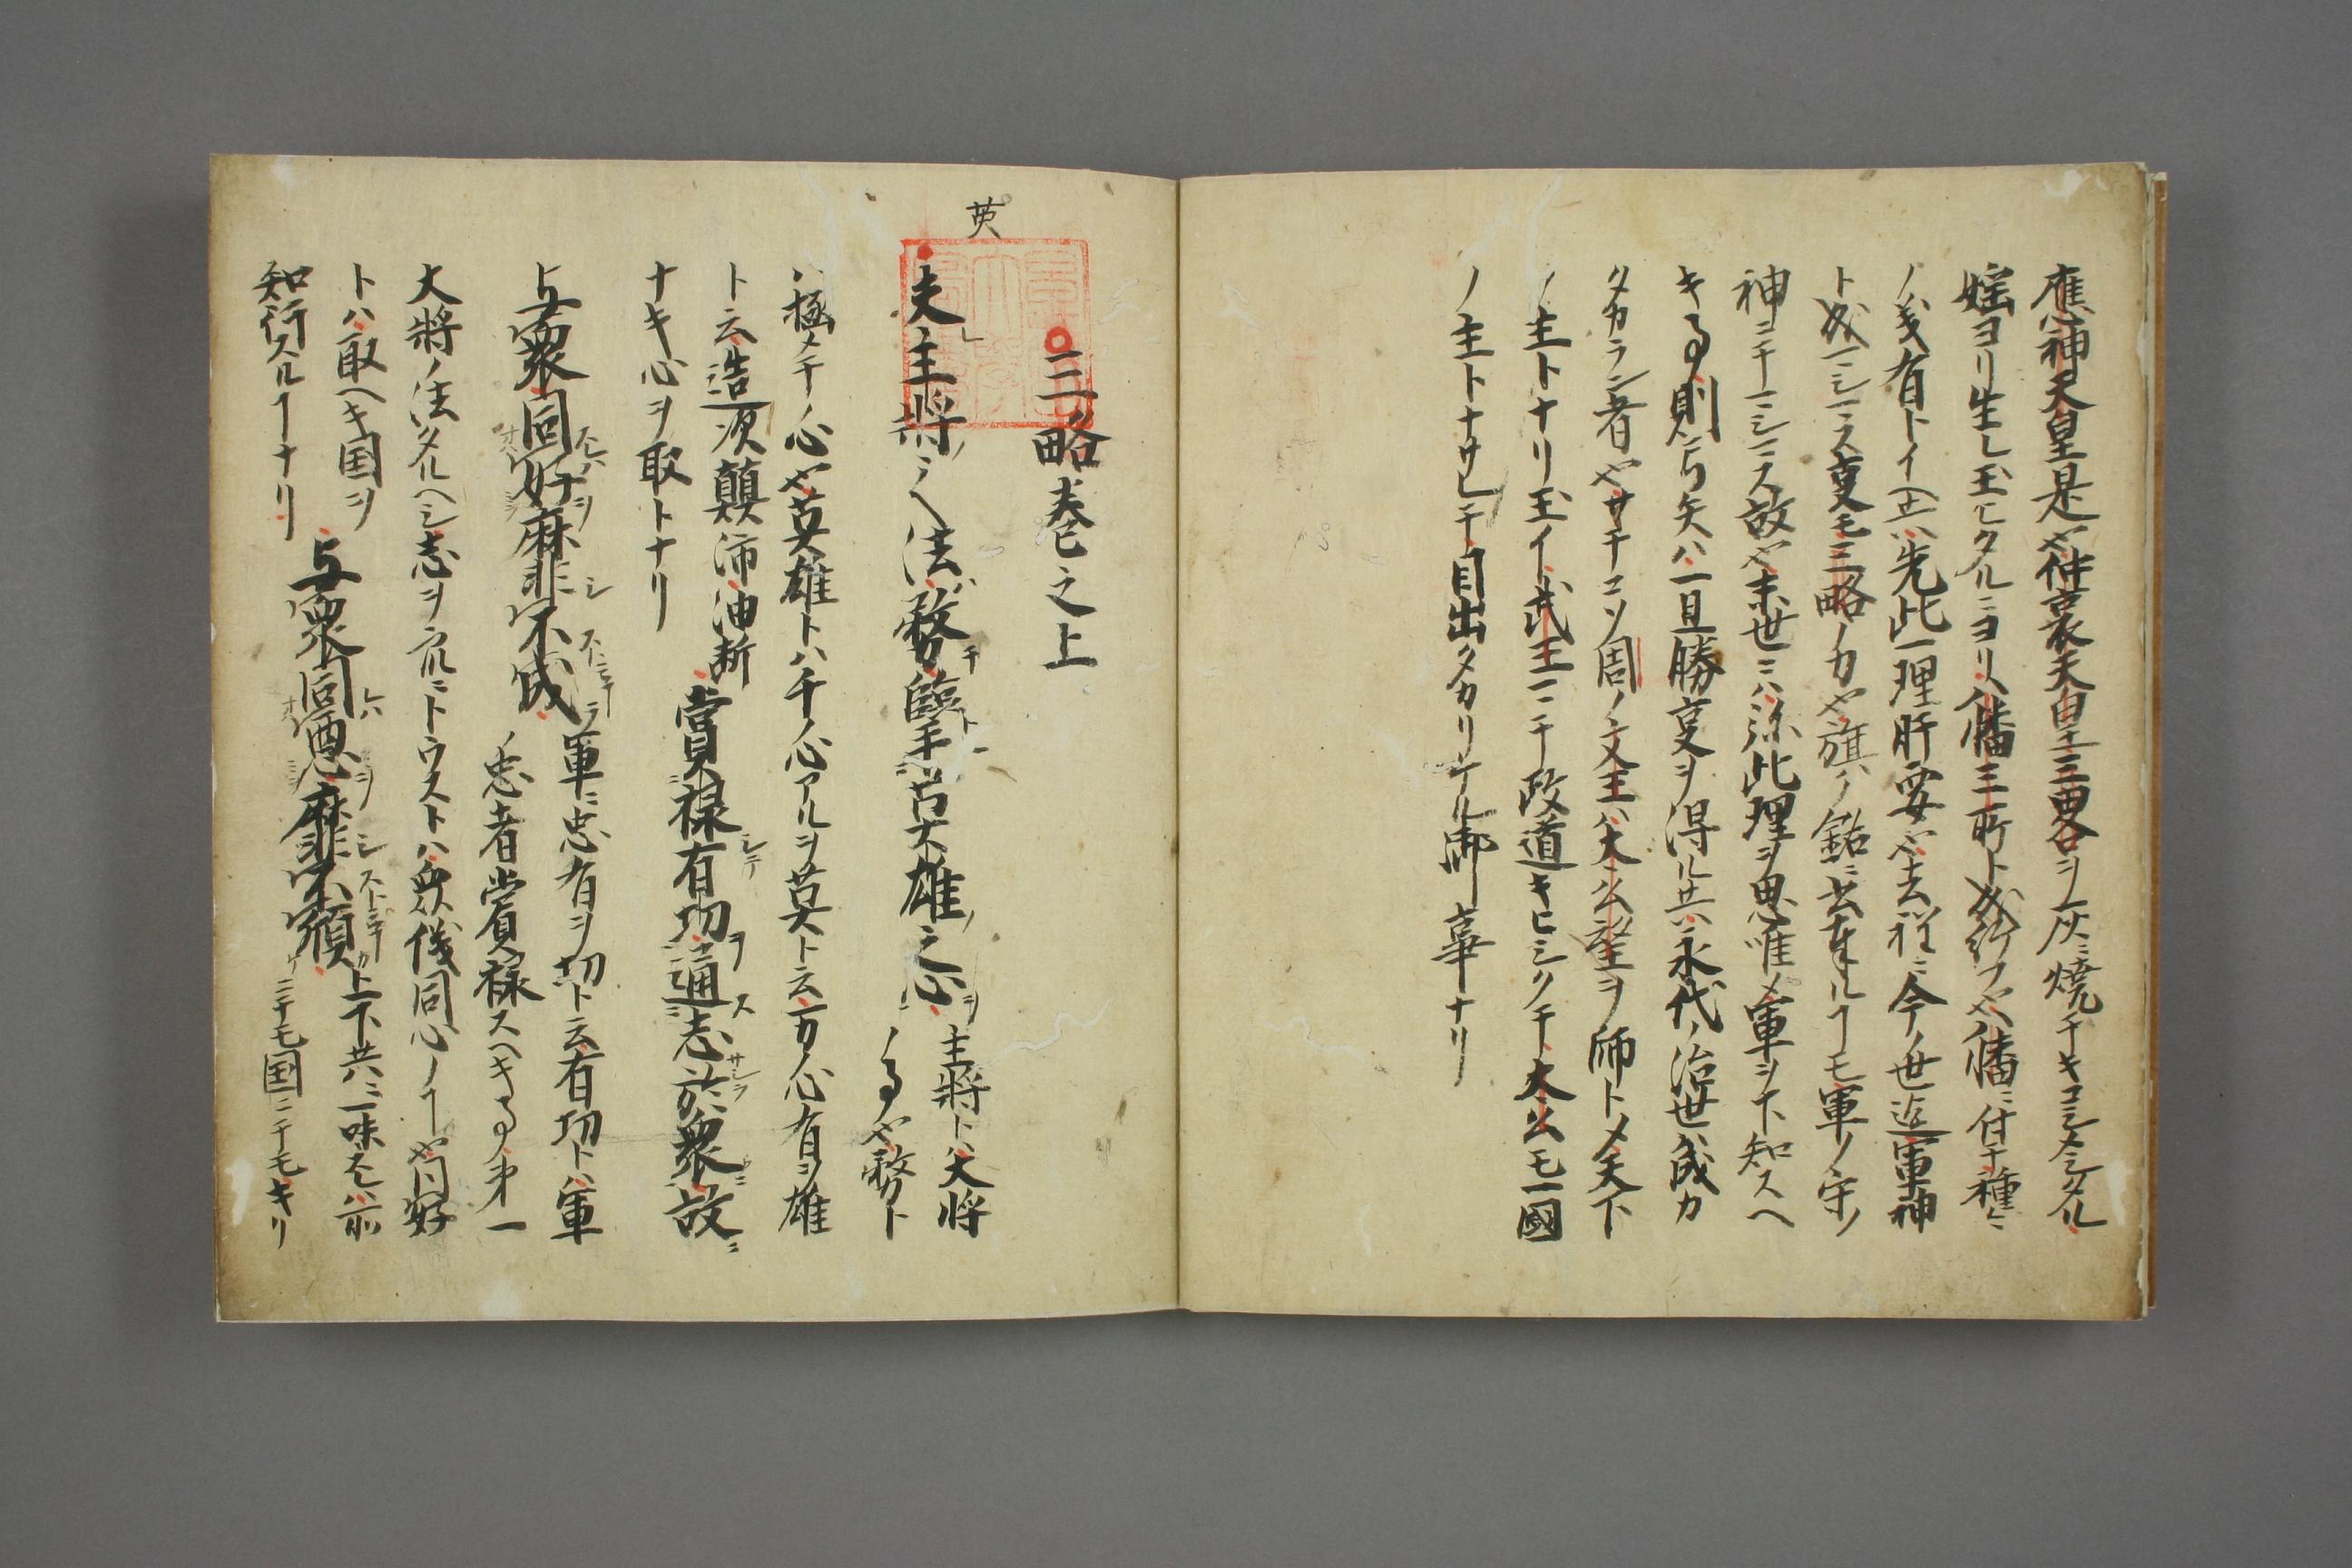 應神天皇是也仲哀天皇三畧ヲ灰ニ焼テキコシメタル
ヨリ生レ玉ヒタルニヨリ八幡三所ト成給フ也幡ニ付テ種々
ノ義有トイヘ𪜈先此一理肝要也去程ニ今ノ世迄軍神
ト成マシマス事モ三略ノ力也旗ノ銘ニ書奉ルヿモ軍ノ守ノ
神ニテマシマス故也末世ニハ弥此理ヲ思惟メ軍ヲ下知スヘ
キ也則弓矢ハ一旦勝事ヲ得ル𪜈永代ノ治世成カ
タカラン者也サテコソ周ノ文王ハ太公望ヲ師トメ天下
ノ主トナリ玉イ武王ニテ政道キヒシクテ太公モ一國
ノ主トナサレテ目出タカリケル御事ナリ
三略巻之上
英
夫主將之法務擥英雄之心
主將トハ大将
ノ也務ト
ハ極メテノ心也英雄トハ千ノ心アルヲ英ト云万心有ヲ雄
ト云造次顛沛油断
ナキ心ヲ取トナリ
賞禄有功通志於衆故
与衆同好靡不成
軍ニ忠有ヲ功ト云有功トハ軍
ノ忠者賞禄スヘキ第一
大將ノ法タルヘシ志ヲニトウストハ衆儀同心ノヿ也同好
トハ取ヘキ国ヲ
知行スルヿナリ
与衆同悪靡不傾
上下共ニ一味ハ前
ニテモ国ニテモキリ